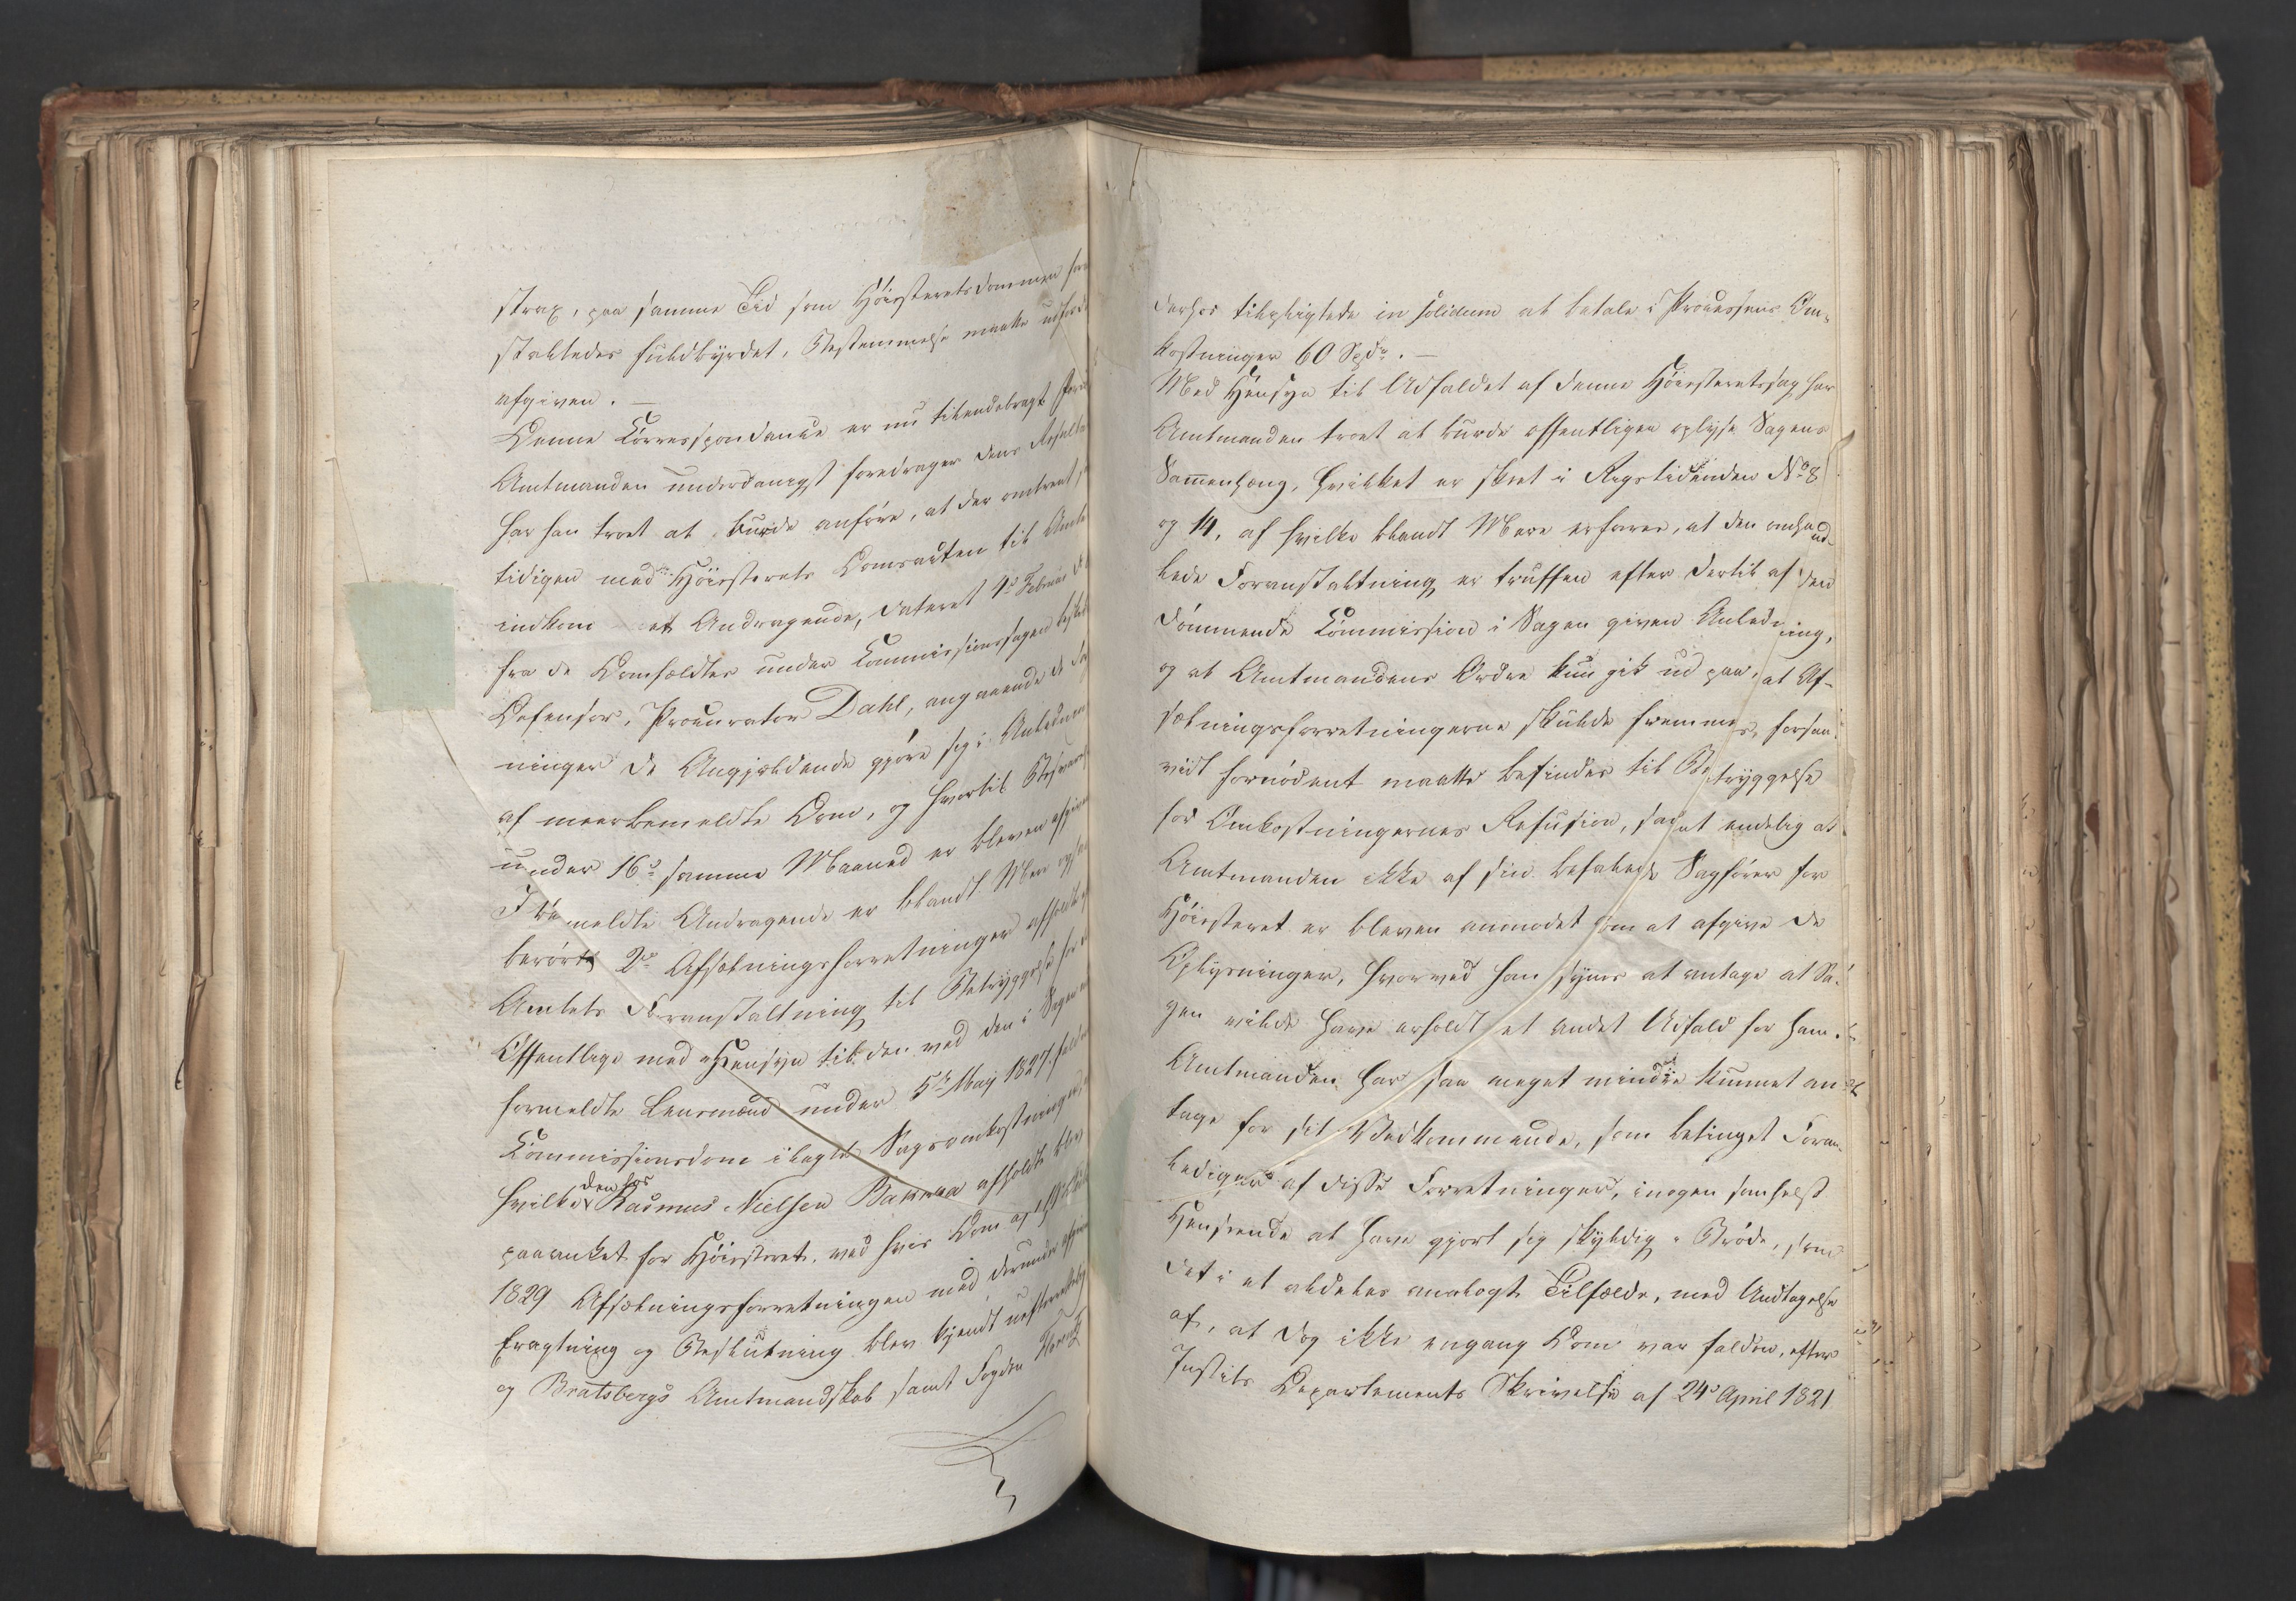 strax, paa samme Tid som Høiesteretsdommen
staltedes fuldbyrdet, Bestemmelse maatte
afgiven. —
Denne Correspondance er nu tilendebragt
Amtmanden underdanigst foredrager dens
har han troet at burde anføre, at der omtrent
tidigen med Høiesterets Domsacten til
indkom et Andragende, dateret 4de Februar
fra de Domfældtes under Commissionssagen
Defensor, Procurator Dahl, angaaende de
ninger de Angjeldende gjøre sig i
af meerbemeldte Dom, og hvortil
under 16de samme Maaned er bleven
I bemeldte Andragende er blandt Mere
berørt 2de Afsætningsforretninger
Amtets Foranstaltning til Betryggelse for
Offentlige med Hensyn til den ved den i Sagen
formeldte Lensmænd under 5te May 1827
Commissionsdom ilagte Sagsomkostninger,
hvilke den hos Rasmus Nielsen Bakkaa afholdte blev
paaanket for Høiesteret, ved hvis Dom af
1829 Afsætningsforretningen med derunder
fragtning og Beslutning blev kjendt
og Bratsbergs Amtmandskab samt Fogden
derhos tilpligtede in solidum at betale i Processens Om-
kostninger 60 Spdr. —
Med Hensyn til Udfaldet af denne Høiesteretssag har
Amtmanden troet at burde offentligen oplyse Sagens
Sammenhæng, hvilket er skeet i Rigstidenden No 8
og 14, af hvilke blandt Mere erfares, at den omhand-
lede Foranstaltning er truffen efter dertil af den
dømmende Commission i Sagen given Anledning,
og at Amtmandens Ordre kun gik ud paa, at Af-
sætningsforretningerne skulde fremmes, forsaa-
vidt fornødent maatte befindes til Betryggelse
for Omkostningernes Refusion, samt endelig at
Amtmanden ikke af sin befalede Sagfører for
Høiesteret er bleven anmodet om at afgive de
Oplysninger, hvorved han synes at antage at Sa-
gen vilde have erholdt et andet Udfald for ham.
Amtmanden har saa meget mindre kunnet an-
tage for sit Vedkommende, som betinget Foran-
lediger af disse Forretninger, i nogen somhelst
Henseende at have gjort sig skyldig i Brøde, som
det i et aldeles analogt Tilfælde, med Undtagelse
af, at dog ikke engang Dom var falden, efter
Justits Departements Skrivelse af 24de April 1821